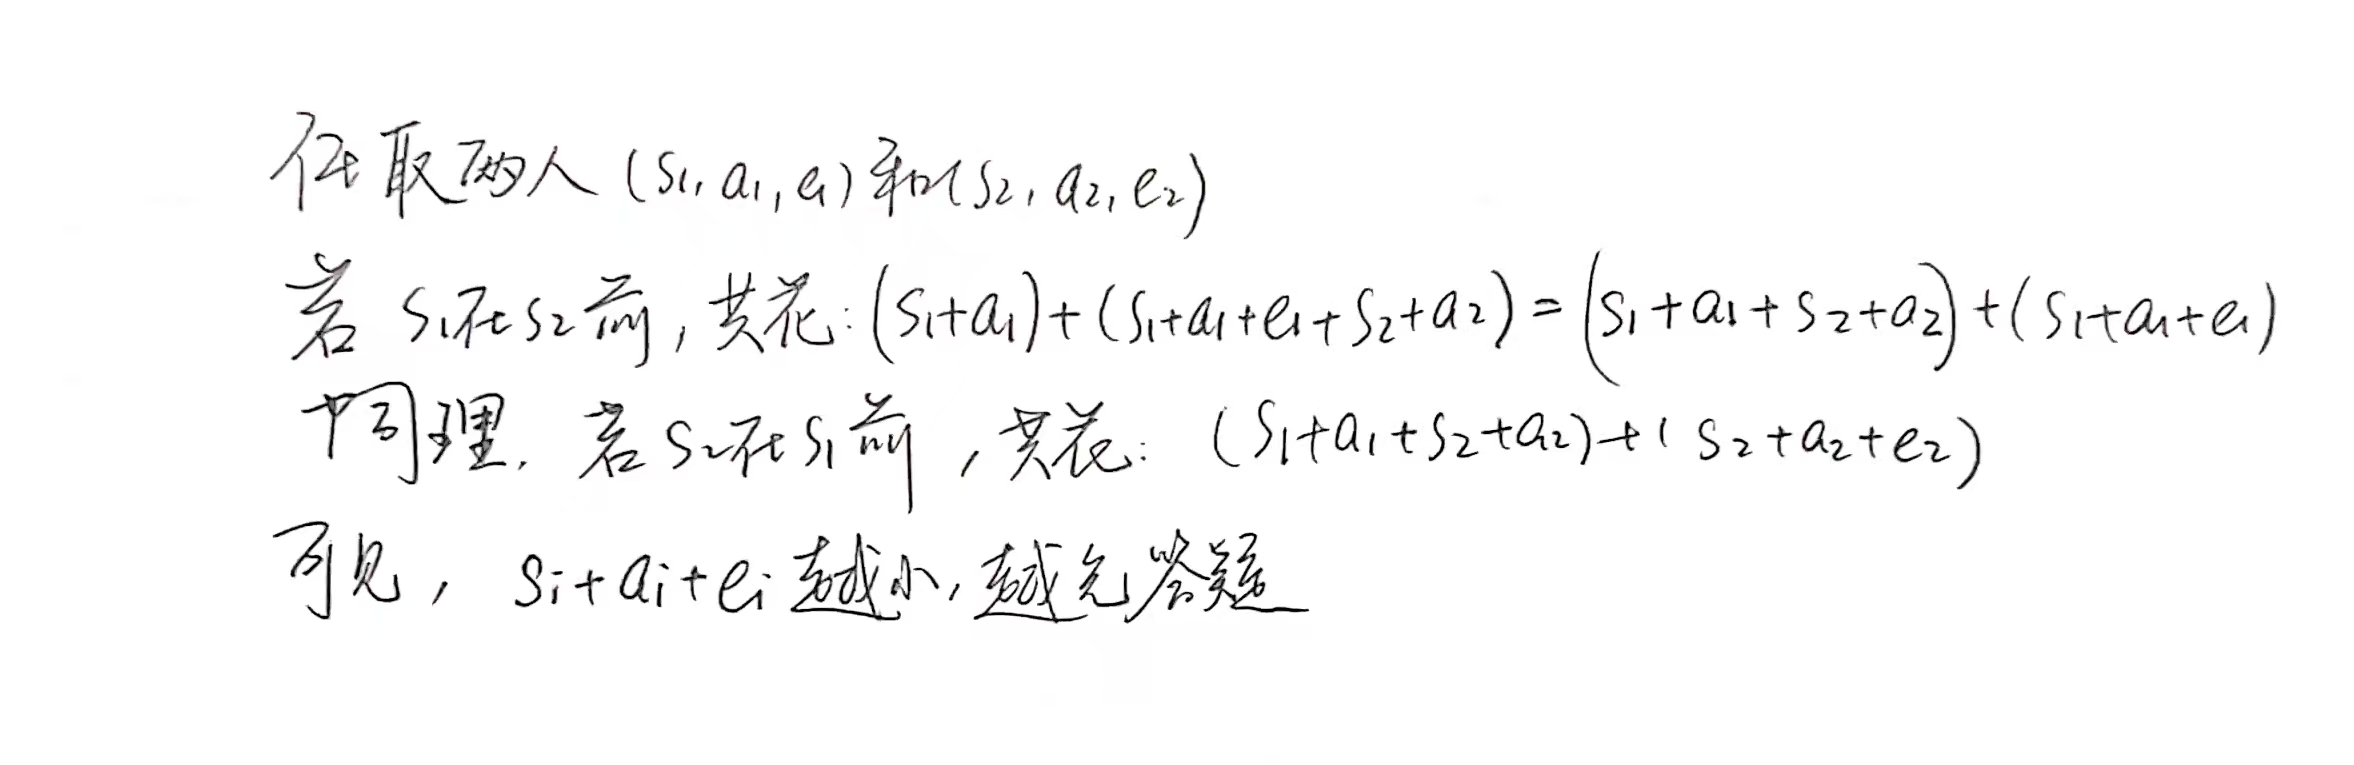 任取两人(s1, a1, e1)和(s2, a2, e2)
若 s1在s2前,共花:(s1+a1)+(s1+a1+e1+s2+a2)=(s1+a1+s2+a2)+(s1+a1+e1)
同理,若s2在s1前,共花:(s1+a1+s2+a2)+(s2+a2+e2)
可见,si+ai+ei越小,越先答疑